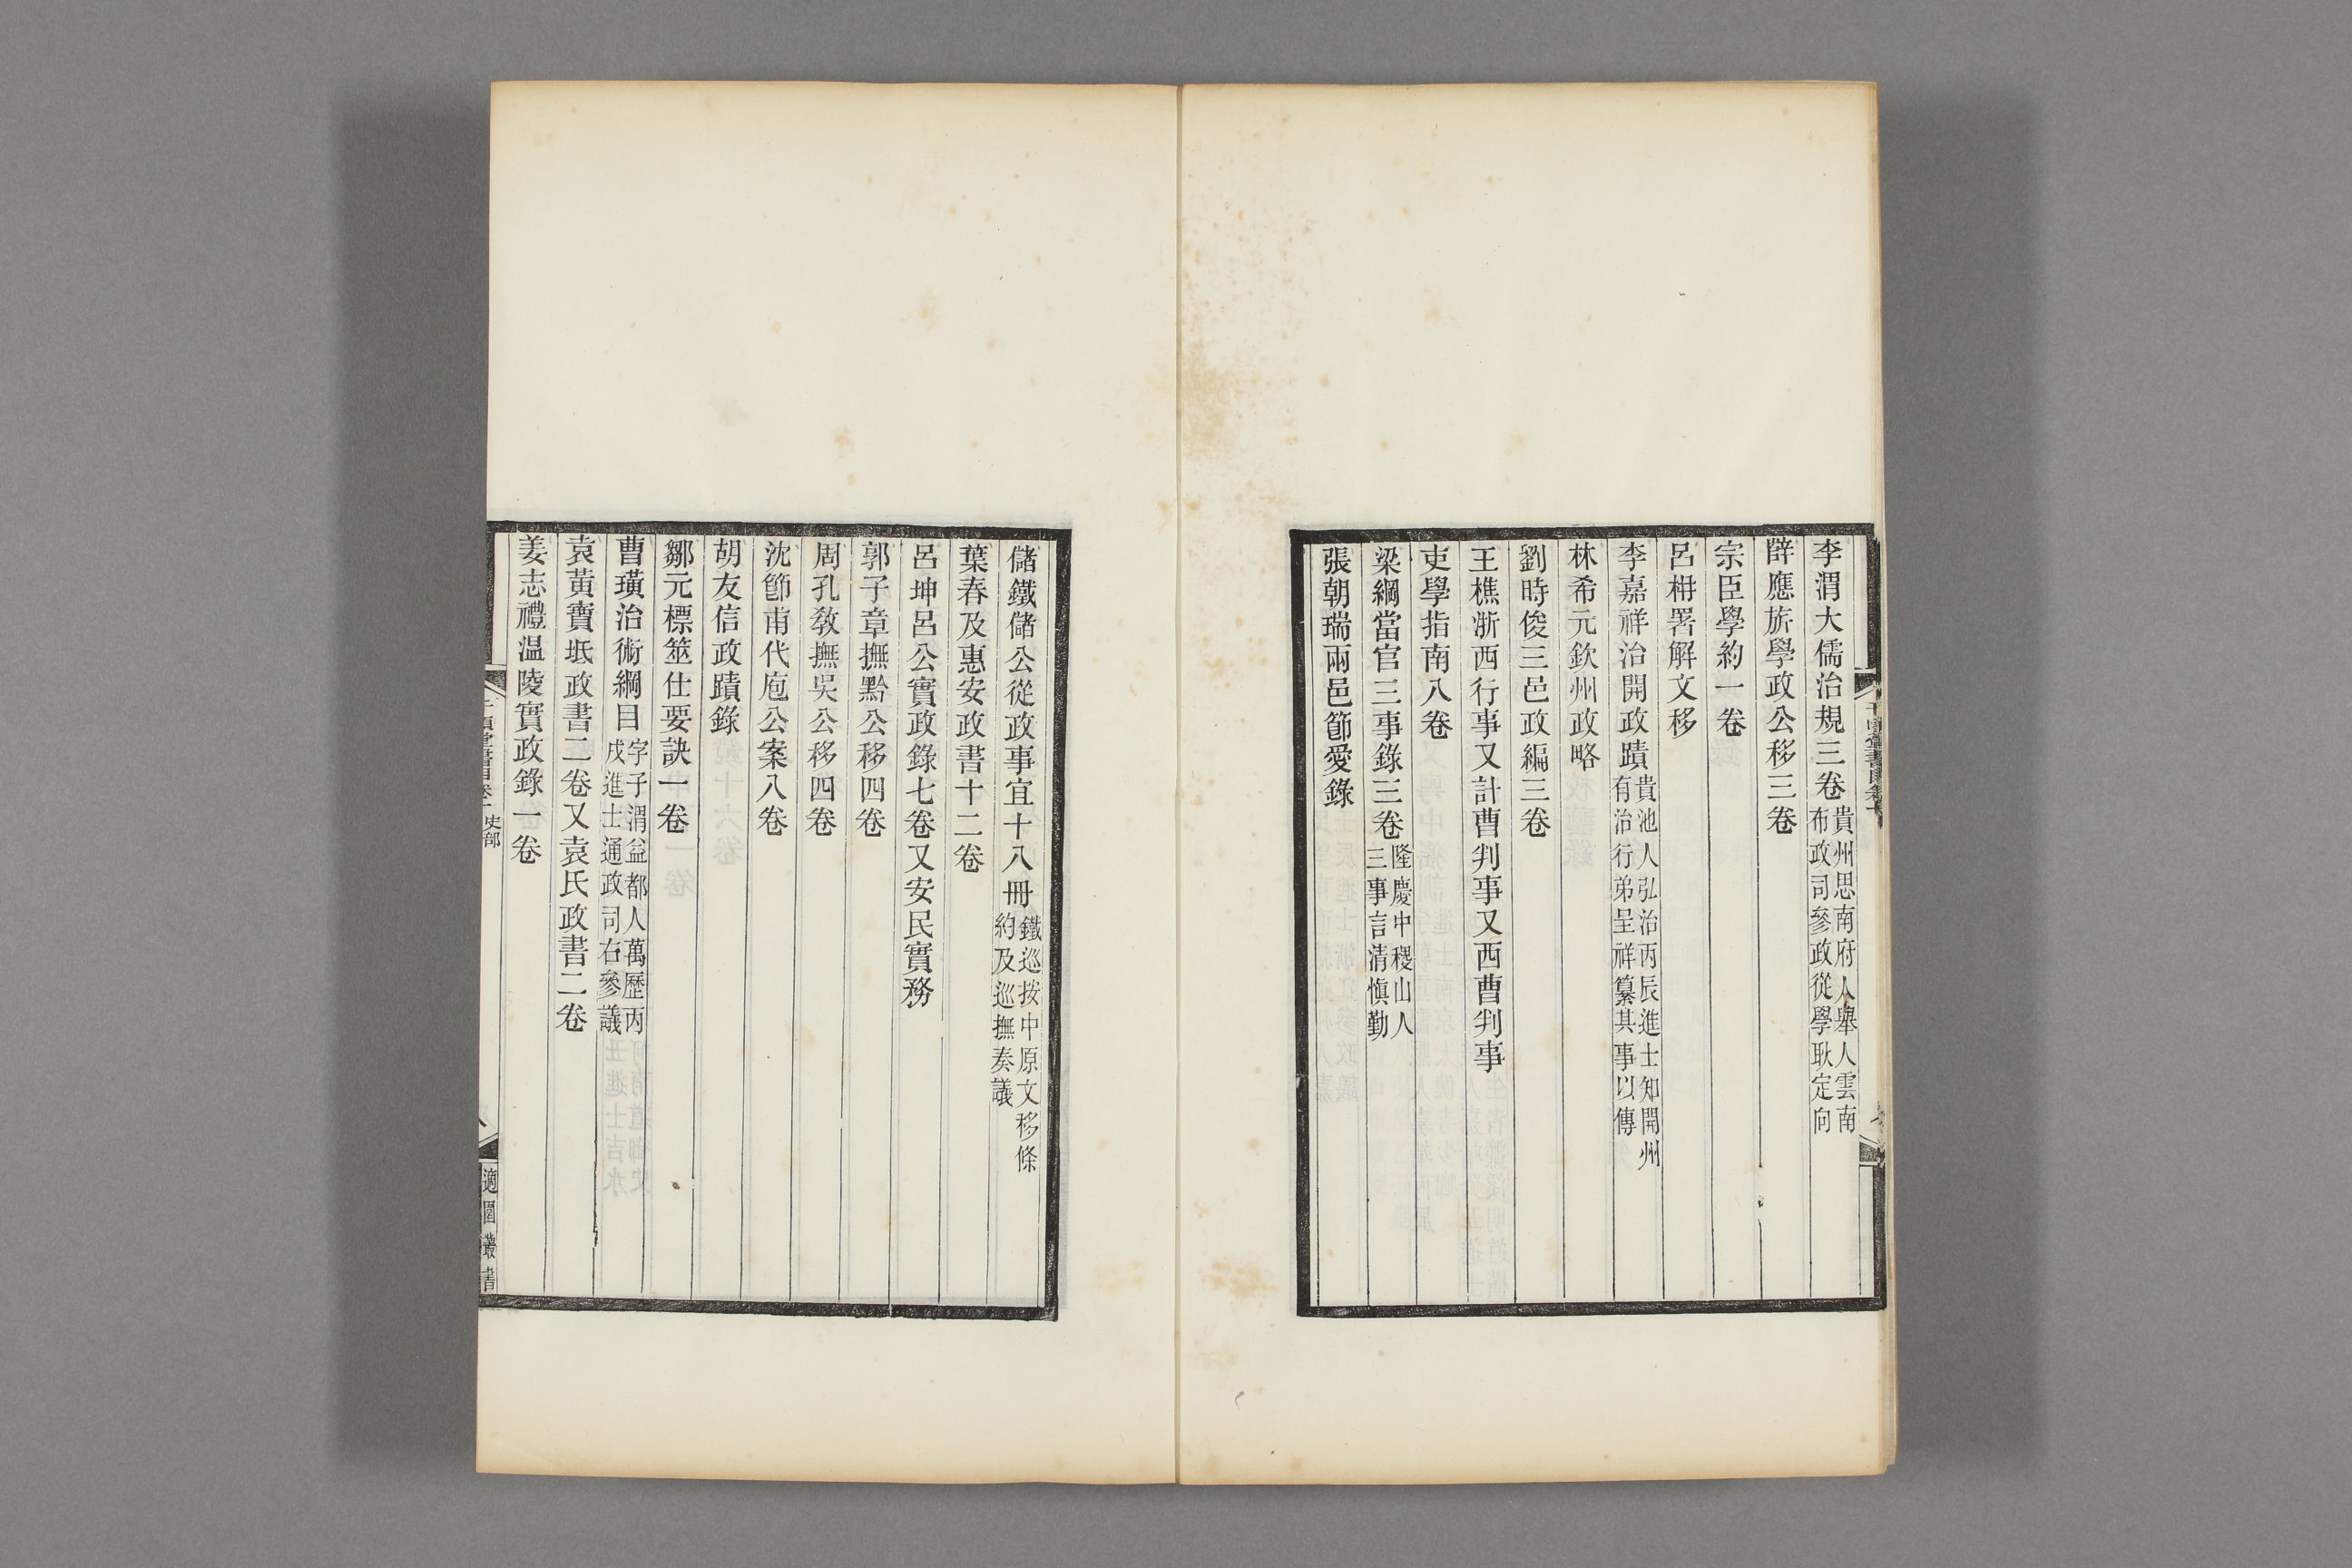 李渭大儒治規三卷貴州思南府人舉人雲南布政司參政從學耿定向
薛應旂學政公移三卷
宗臣學約一卷
呂枏署解文移
李嘉祥治開政蹟貴池人弘治丙辰進士知開州有治行弟呈祥纂其事以傳
林希元欽州政略
劉時俊三邑政編三卷
王樵浙西行事又計曹判事又西曹判事
吏學指南八卷
梁綱當官三事錄三卷隆慶中稷山人三事言清愼勤
張朝瑞兩邑節愛錄
儲鐵儲公從政事宜十八冊鐵巡按中原文移條約及巡撫奏議
葉春及惠安政書十二卷
呂坤呂公實政錄七卷又安民實務
郭子章撫黔公移四卷
周孔敎撫吳公移四卷
沈節甫代庖公案八卷
胡友信政蹟錄
鄒元標筮仕要訣一卷
曹璜治術綱目字子渭益都人萬歷丙戌進士通政司右參議
袁黃寶坻政書二卷又袁氏政書二卷
姜志禮温陵實政錄一卷
史部
八
適園叢書